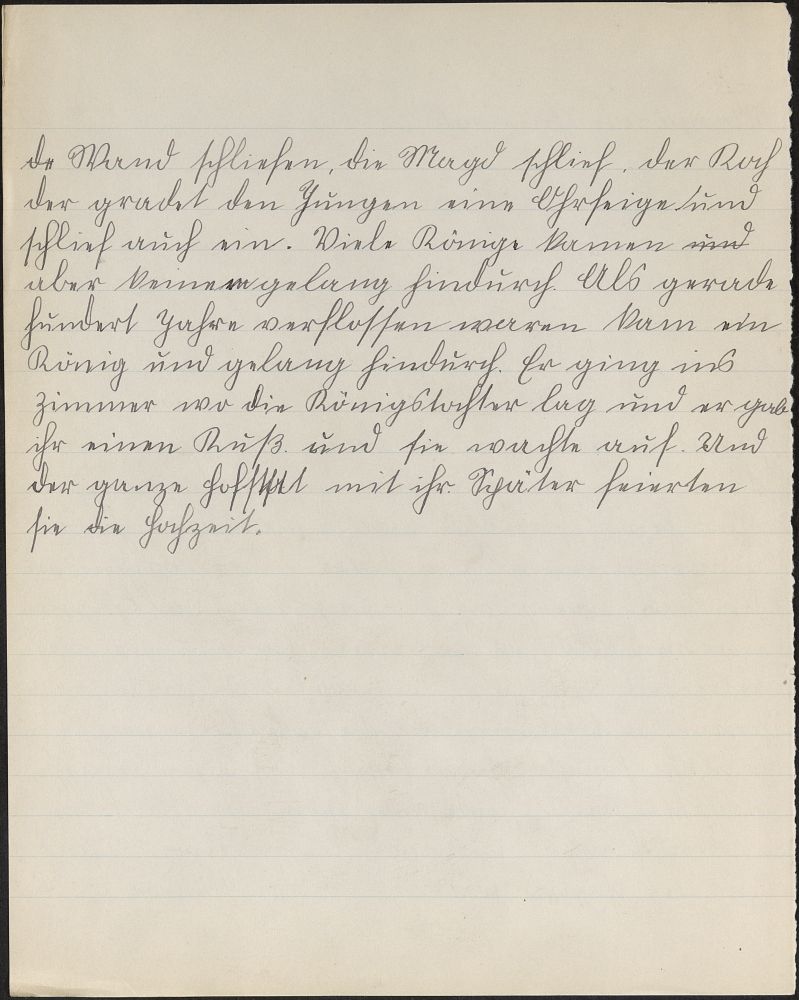 de Wand schliefen, die Magd schlief, der Koch
der gradet den Jungen eine Ohrfeige und
schlief auch ein. Viele Könige kamen und
aber keinem gelang hindurch. Als gerade
hundert Jahre verflossen waren kam ein
König und gelang hindurch. Er ging ins
Zimmer wo die Königstochter lag und er gab
ihr einen Kuß. und sie wachte auf. Und
der ganze Hofstat mit ihr. Später feierten
sie die Hochzeit.